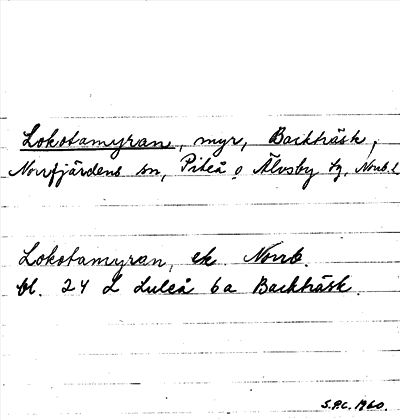 Lokotamyran, myr, Backträsk,
Norrfjärdens sn, Piteå o Älvsby tg, Norrb. l
Lokotamyran, ek. Norrb.
bl. 24 L Luleå 6a Backträsk.
S.P.C. 1960.